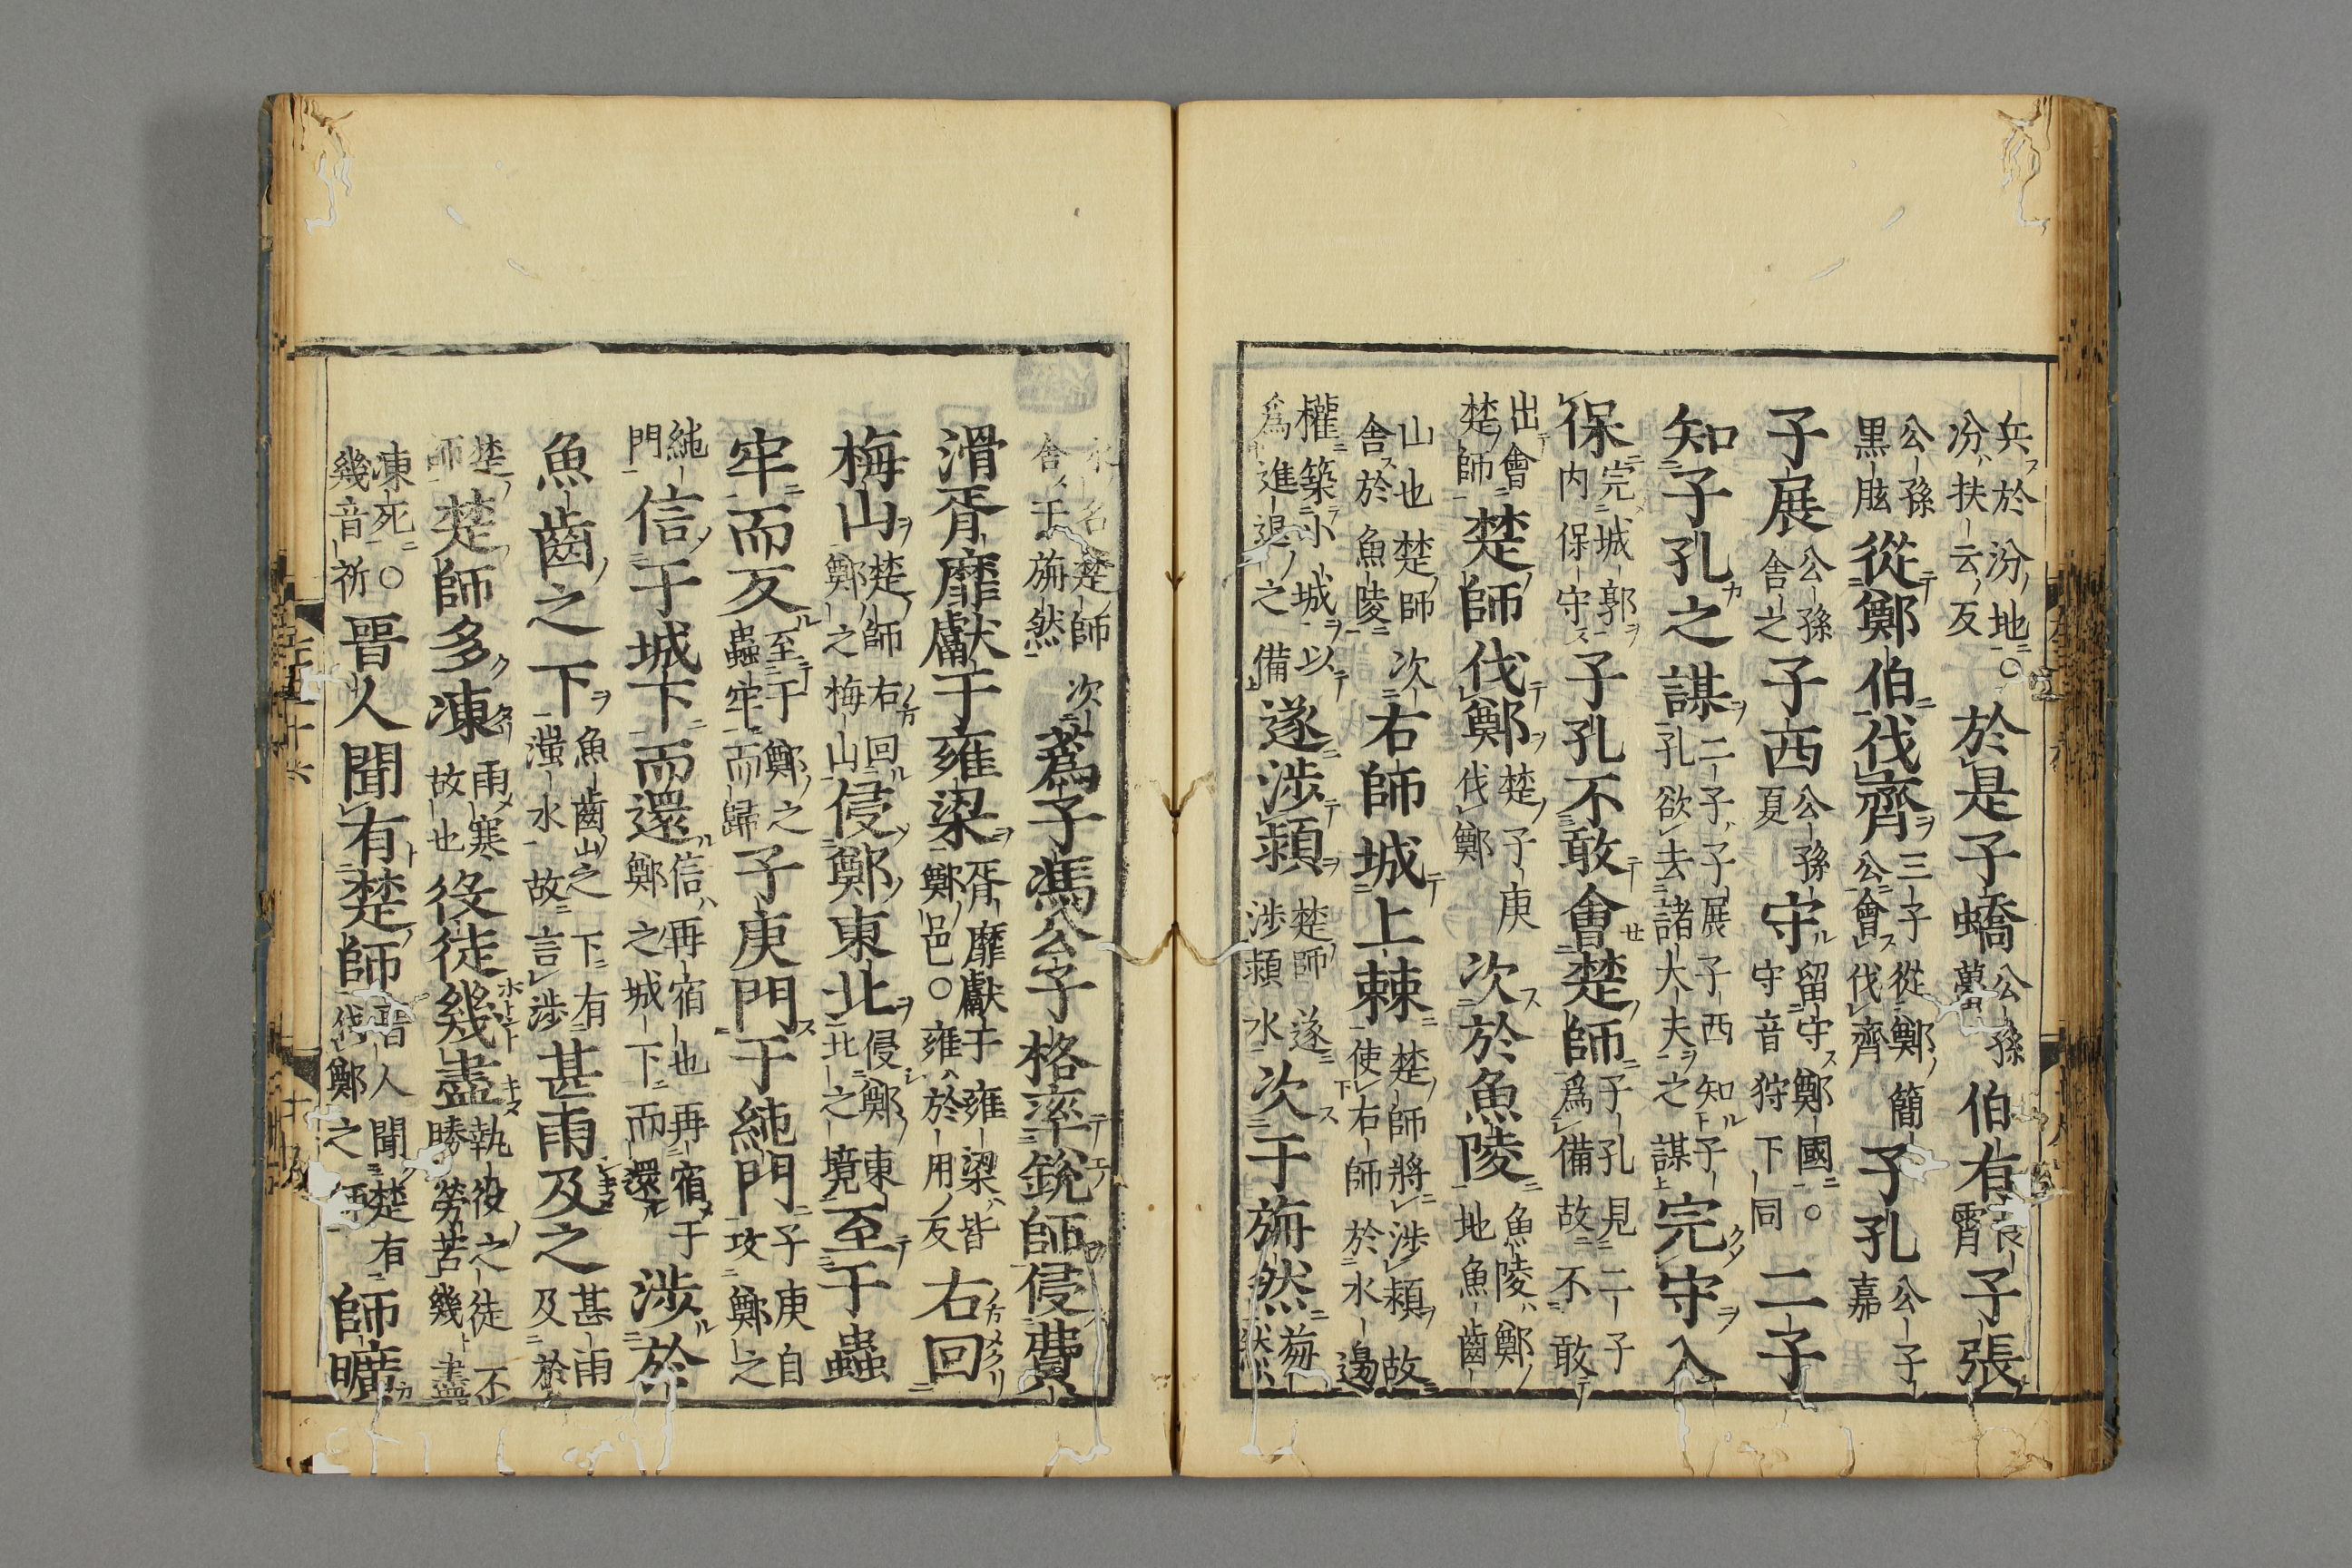 兵於汾地○汾扶云反於是子蟜公孫蠆伯有良霄子張
公孫黒肱從鄭伯伐齊三子從鄭簡公會伐齊子孔公子嘉
子展公孫舎之子西公孫夏守留守鄭國○守音狩下同二子
知子孔之謀二子子展子西知子孔欲去諸大夫之謀完守入
保完城郭内保守子孔不敢會楚師子孔見二子爲備故不敢
出會楚師楚師伐鄭楚子庚伐鄭次於魚陵魚陵鄭地魚齒
山也楚師次舎於魚陵右師城上棘楚師將渉潁故使右師於水邊
權築小城以爲進退之備遂渉潁楚師遂渉潁水次于旃然旃然
水名楚師次舎于旃然蔿子馮公子格率銳師侵費
滑胥靡獻于雍梁胥靡獻于雍梁皆鄭邑○雍於用反右回
梅山楚師右回鄭之梅山侵鄭東北侵鄭東北之境至于蟲
牢而反至于鄭之蟲牢而歸子庚門于純門子庚自攻鄭之
純門信于城下而還信再宿也再宿于鄭之城下而還渉於
魚齒之下魚齒山之下有滍水故言渉甚雨及之甚雨及於
楚師楚師多凍雨寒故也役徒幾盡執役之徒不勝勞苦幾盡
凍死○幾音祈晉人聞有楚師晉人聞楚有伐鄭之師師曠